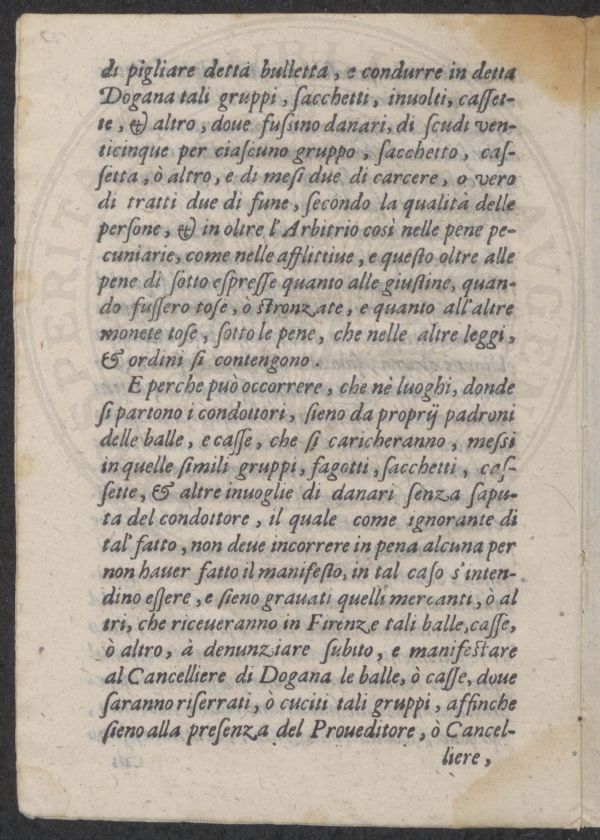 di pigliare detta bulletta, e condurre in detta
Dogana tali gruppi, ſacchetti, inuolti, caſſet-
te, & altro, doue fuſſino danari, di ſcudi ven-
ticinque per ciaſcuno gruppo, ſacchetto, caſ-
ſetta, ò altro, e di meſi due di carcere, o vero
di tratti due di fune, ſecondo la qualità delle
perſone, & in oltre l'Arbitrio così nelle pene pe-
cuniarie, come nelle afflittiue, e queſto oltre alle
pene di ſotto eſpreſſe quanto alle giuſtine, quan-
do fuſſero toſe, ò ſtronzate, e quanto all'altre
monete toſe, ſotto le pene, che nelle altre leggi,
& ordini ſi contengono.
E perche può occorrere, che ne luoghi, donde
ſi partono i condottori, ſieno da proprij padroni
delle balle, e caſſe, che ſi caricheranno, meſſi
in quelle ſimili gruppi, fagotti, ſacchetti, caſ-
ſette, & altre inuoglie di danari ſenza ſapu-
ta del condottore, il quale come ignorante di
tal' fatto, non deue incorrere in pena alcuna per
non hauer fatto il manifeſto, in tal caſo s'inten-
dino eſſere, e ſieno grauati quelli mercanti, ò al
tri, che riceueranno in Firenze tali balle, caſſe,
ò altro, à denunziare ſubito, e manifeſtare
al Cancelliere di Dogana le balle, ò caſſe, doue
ſaranno riſerrati, ò cuciti tali gruppi, affinche
ſieno alla preſenza del Proueditore, ò Cancel-
liere,